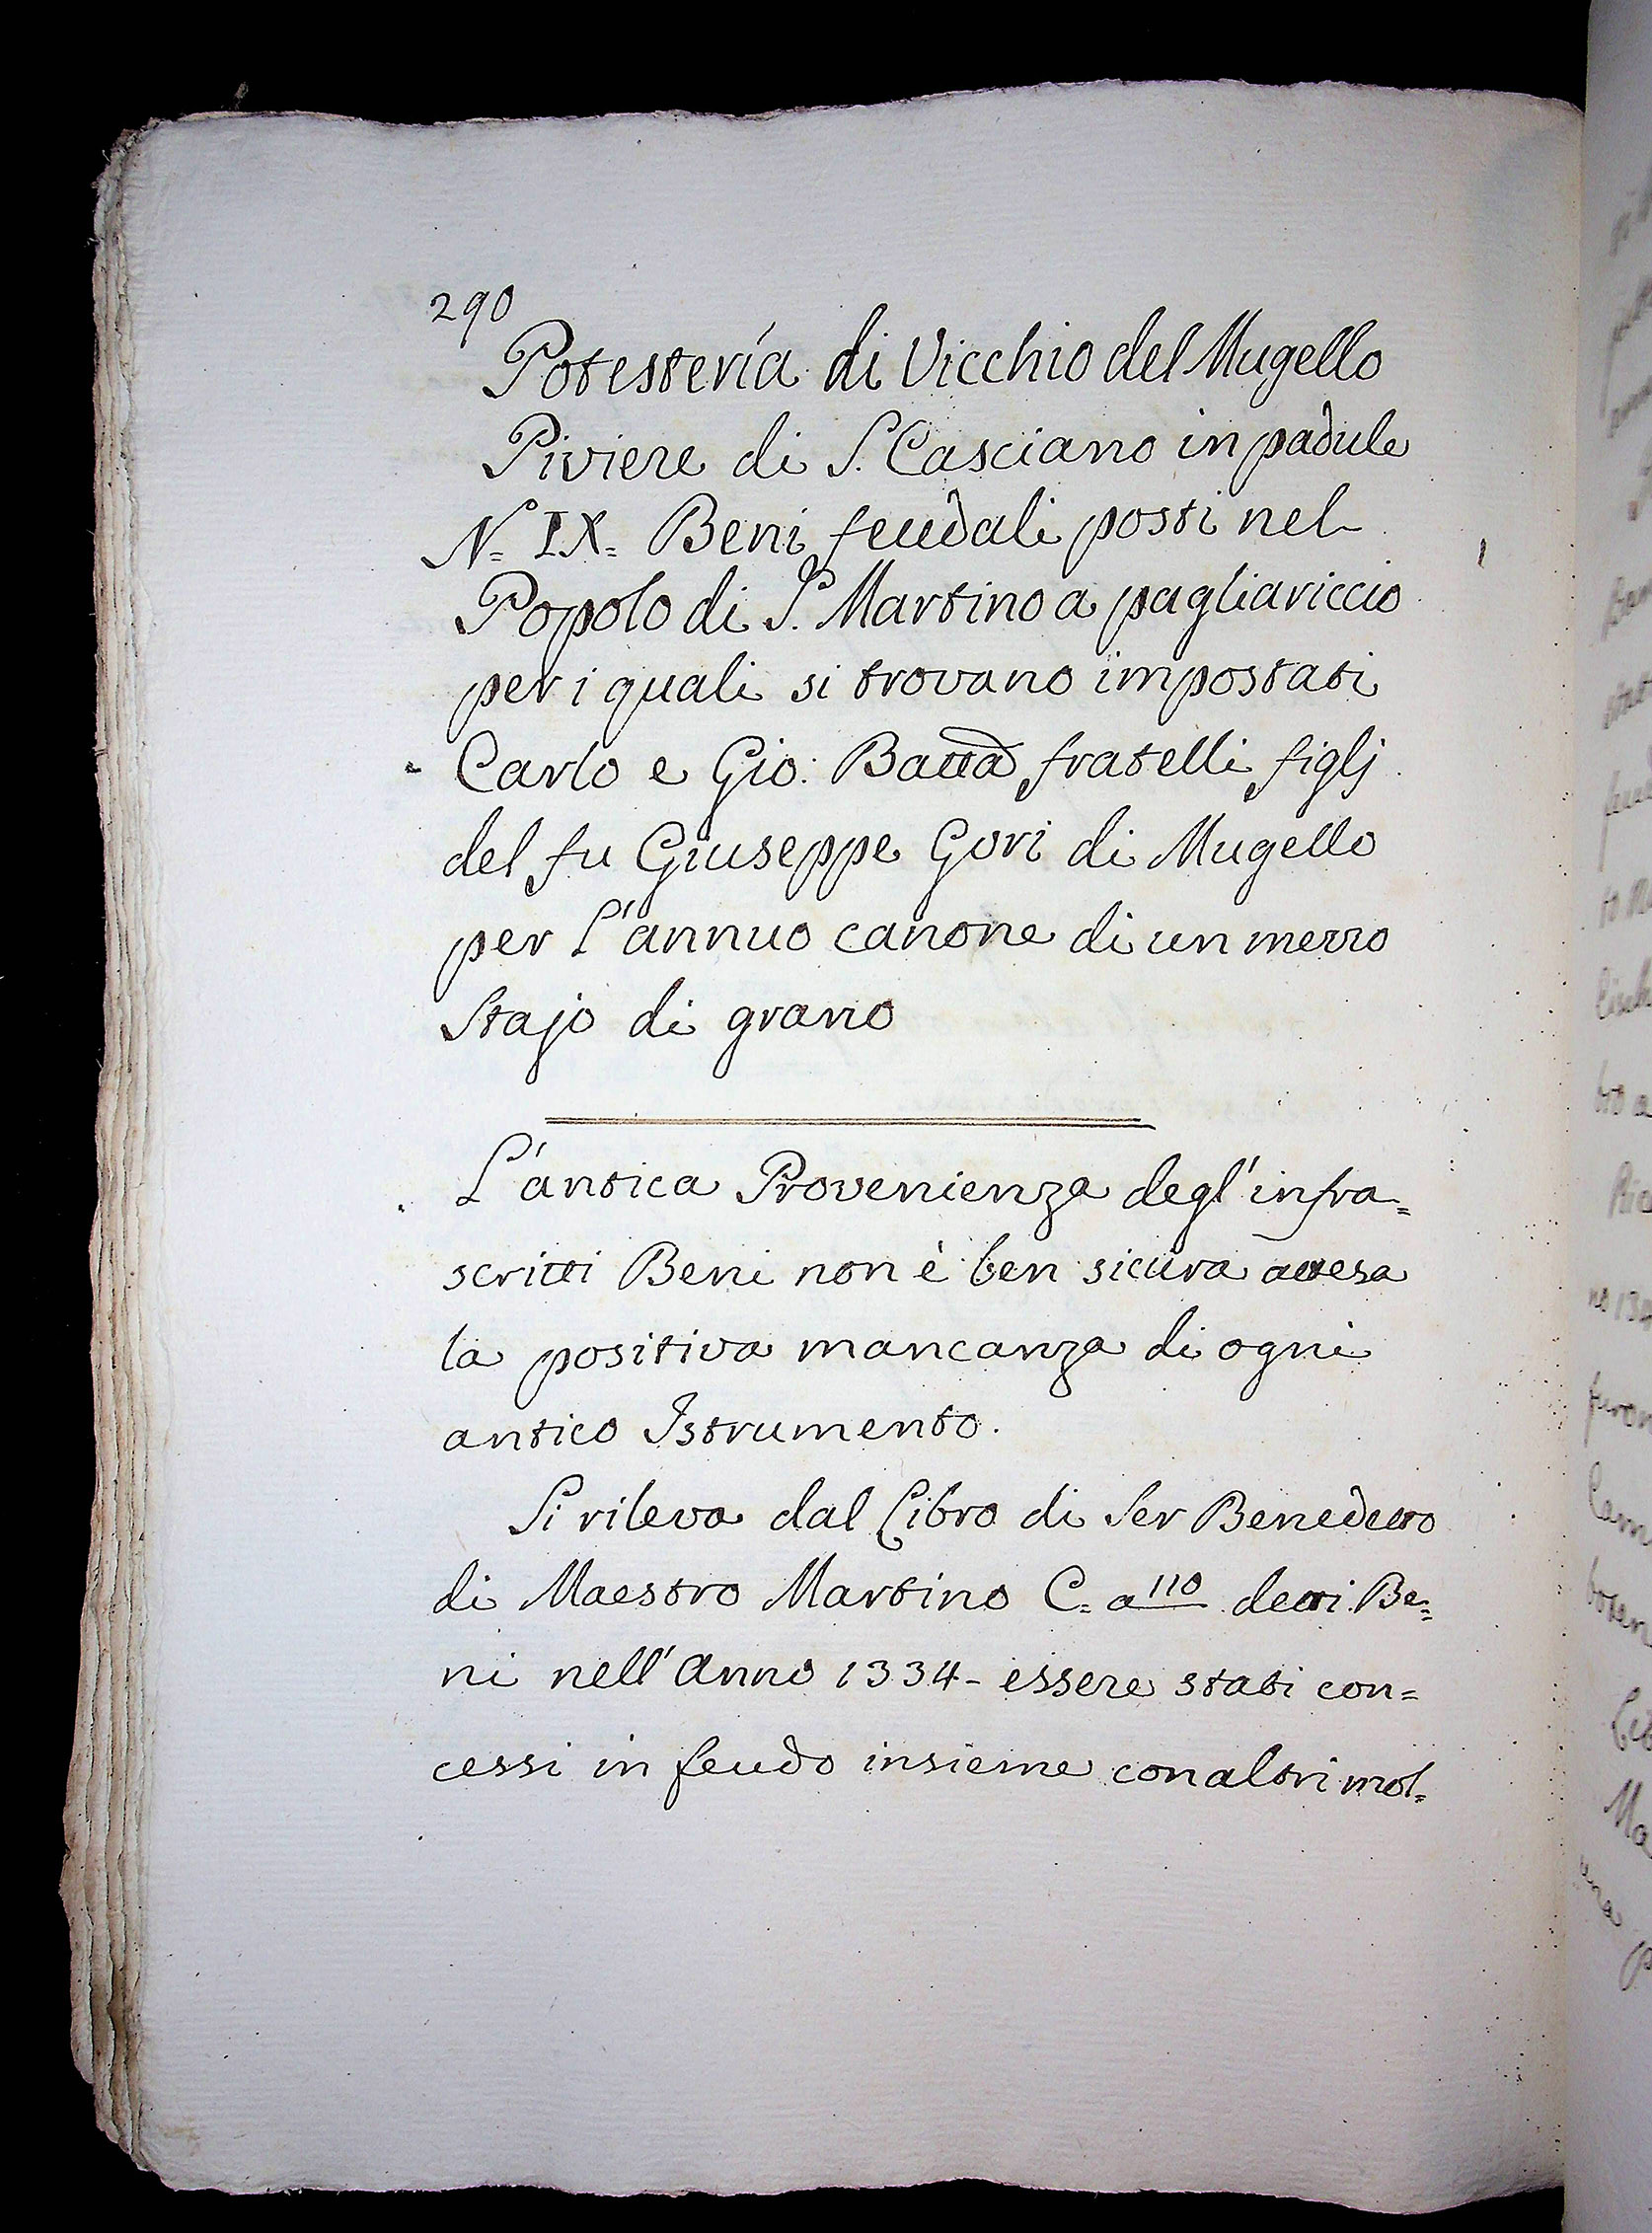 290
Potestería di Vicchio del Mugello
Piviere di S. Casciano in padule
N.= IX.= Beni feudali posti nel
Popolo di S. Martino a pagliariccio
per i quali si trovano impostati
Carlo e Gio: Batta fratelli figlj
del fu Giuseppe Gori di Mugello
per L'annuo canone di un mezzo
Stajo di grano
L'antica Provenienza degl'infra=
scritti Beni non è ben sicura attesa
la positiva mancanza di ogni
antico Istrumento.
Si rileva dal Libro di Ser Benedetto
di Maestro Martino C.= a 110 detti Be=
ni nell'Anno 1334- essere stati con=
cessi in feudo insieme con altri mol=